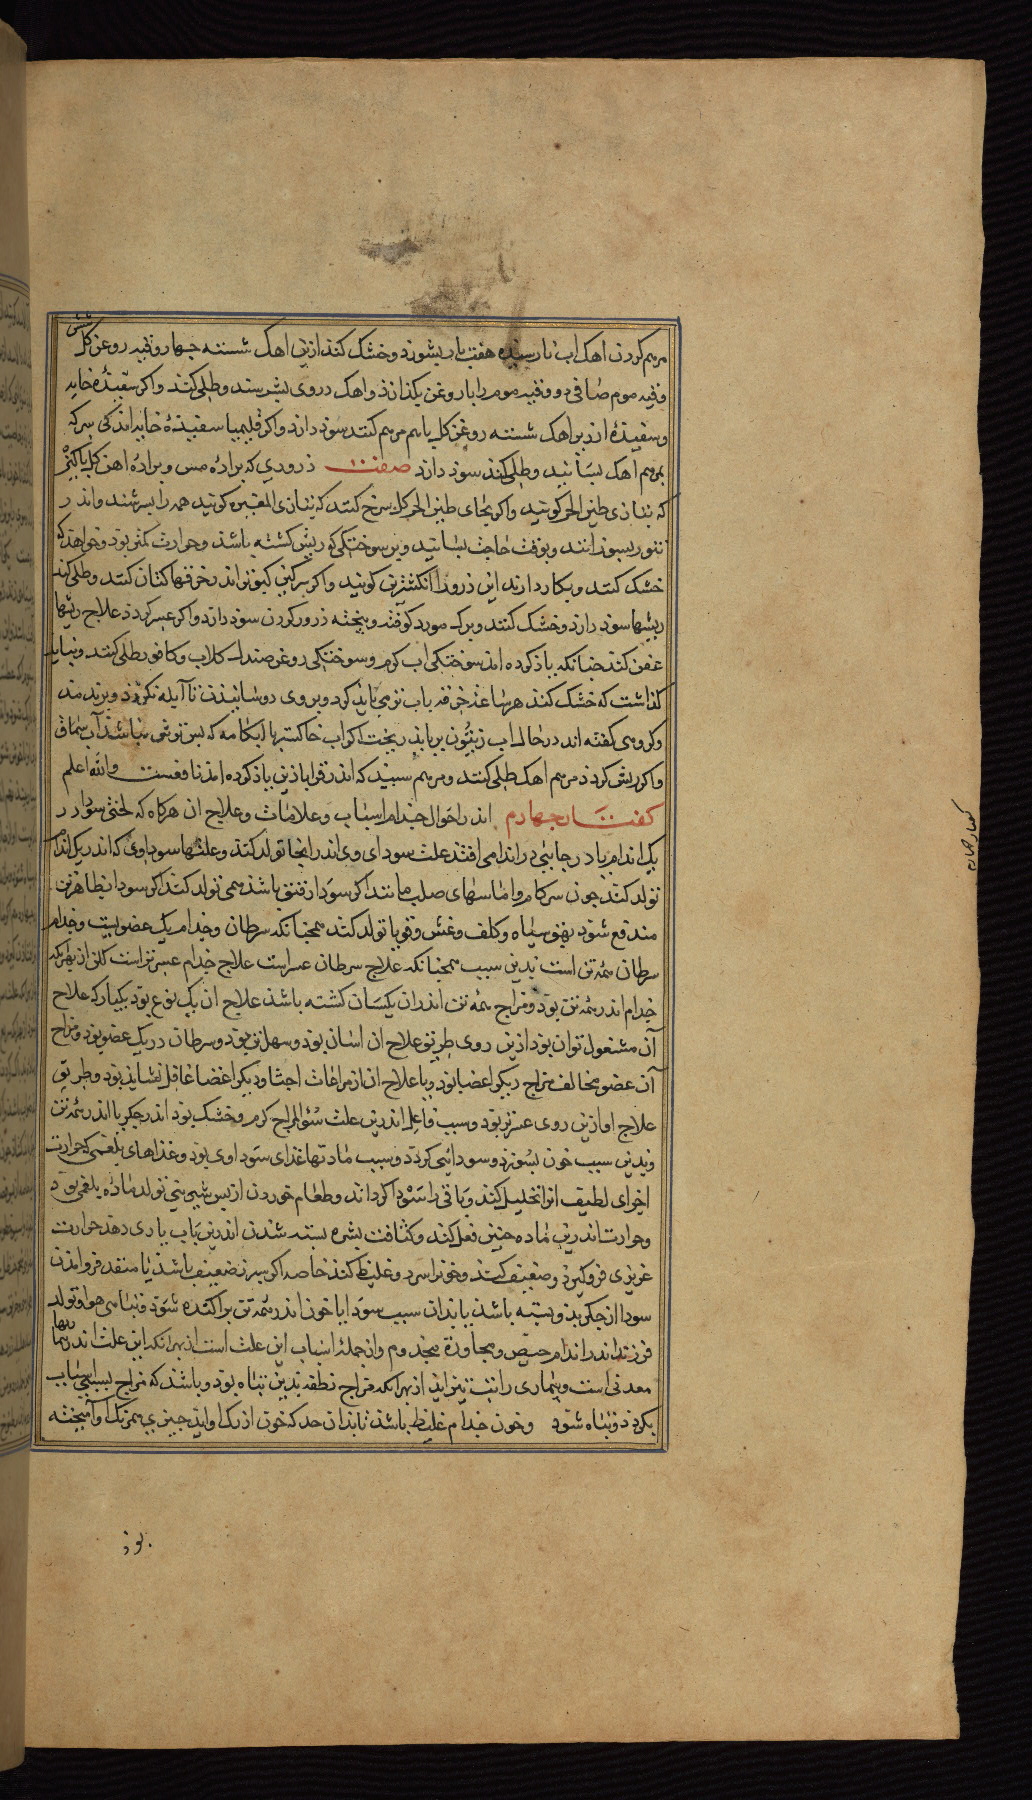 شش
مرهم کردن اهک اب نارسیده هفت بار بشویند وخشک کنند ازین اهک شسته چهار وقیه روغن کل
وقیه موم صافی دو وقیه موم را با روغن بکدازند واهک در وی بسرشند وطلی کنند واکر سفیدهٔ خایه
وسفیدهٔ ارزیز باهک شسته وروغن کل بهم مرهم کنند سود دارد واکر قلیمیا سفیدهٔ خایه اندکی سرکه
بمرهم اهک بسایند وطلی کنند سود دارد صفت ذروری که برادهٔ مس وبرادهٔ اهن کل پاکیزه
که بتازی طین الحر کویند واکر بجای طین الحر کل سرخ کنند که بتازی المغره کویند همه را بسرشند واندر
تنور بسوزانند وبوقت حاجت بسایند وبر سوختکی که ریش کشته باشد وحرارت کمتر بود وخواهند که
خشک کنند وبکار دارند این ذرور را انکشترین کویند واکر سرکین کبوتر اندر خرقها کتان کنند وطلی کنند
ریشها سود دارد وخشک کنند وبرک مورد کوفته وبیخته ذرور کردن سود دارد واکر عسر کردد علاج ریشها
عفن کنند چنانکه یاذ کرده اند سوختکی اب کرم وسوختکی روغن صندل کلاب وکافور طلی کنند ونباید
کذاشت که خشک کنند هر ساعة خرقه باب تر می باید کرد وبر وی دوسانیدن تا آبله نکردد وبرندمند
وکروهی کفته اند در حال اب زیتون بر باید ریخت اکر اب خاکستر یا ابکامه که بس ترش نباشد آب سماق
واکر ریش کردد مرهم اهک طلی کنند ومرهم سپید که اندر قراباذین یاذ کرده اند نافعست والله اعلم
کفتار چهارم اندر احوال جذام اسباب وعلامات وعلاج ان هرکاه که لختی سودا در
یک اندام یا در جانبی در اندامی افتد علت سودای وی اندر انجا تولد کند وعلتها سوداوی که اندر یک اندام
تولد کند چون سرطان واماسهای صلب مانند اکر سودا رقیق باشد همی تولد کند اکر سودا بظاهر تن
مندفع شود بهق سیاه وکلف ونمش وقوبا تولد کند همچنانکه سرطان وجذام یک عضویست وجذام
سرطان همه تن است بدین سبب همچنانکه علاج سرطان عسر است علاج جذام عسرتر است لکن از بهر انکه
جذام اندر همه تن بود ومزاج همه تن اندران یکسان کشته باشد علاج ان یک نوع بود یکبار که علاج
آن مشغول توان بود ازین روی طریق علاج ان اسان بود وسهل تر بود وسرطان در یک عضو بود ومزاج
آن عضو مخالف مزاج دیکر اعضا بود وبا علاج ان از مراعات احشا ودیکر اعضا غافل نشاید بود وطریق
علاج او ازین روی عسرتر بود وسبب فاعل اندرین علت سوٴالمزاج کرم وخشک بود اندر جکر یا اندر همه تن
وبدین سبب خون بسوزد وسودائی کردد وسبب مادتها غذای سوداوی بود وغذاهای بلغمی که حرارت
اجزای لطیف انرا تحلیل کند وباقی را سودا کرداند وطعام خوردن از پس شیر یتی تولد ماده بلغمی بود
وحرارت اندرین ماده چنین فعل کند وکثافت بشره بسته شدن اندرین باب یاری دهد حرارت
غریزی فروکیرد وضعیف کند وخونرا سرد وغلیظ کند خاصه اکر سپرز ضعیف باشد یا منفذ فرو امدن
سودا از جکر بدو بسته باشد یا بدان سبب سودا با خون اندر همه تن پراکنده شود وتباهی هوا وتولد
فرزند اندر اندام حیض ومجاورة مجذوم وان جمله اسباب این علت است از بهر انکه این علت اندر بیماریها
معدنی است وبیماری رانیت بیزاید از بهر انکه مزاج نطفه بدین تباه بود وباشد که مزاج بسببی اسباب
بکردد وتباه شود وخون جذام غلیظ باشد تا بدان حد که خون از رک او اید چیزی همرنک او آمیخته
کفتار چهارم
بود